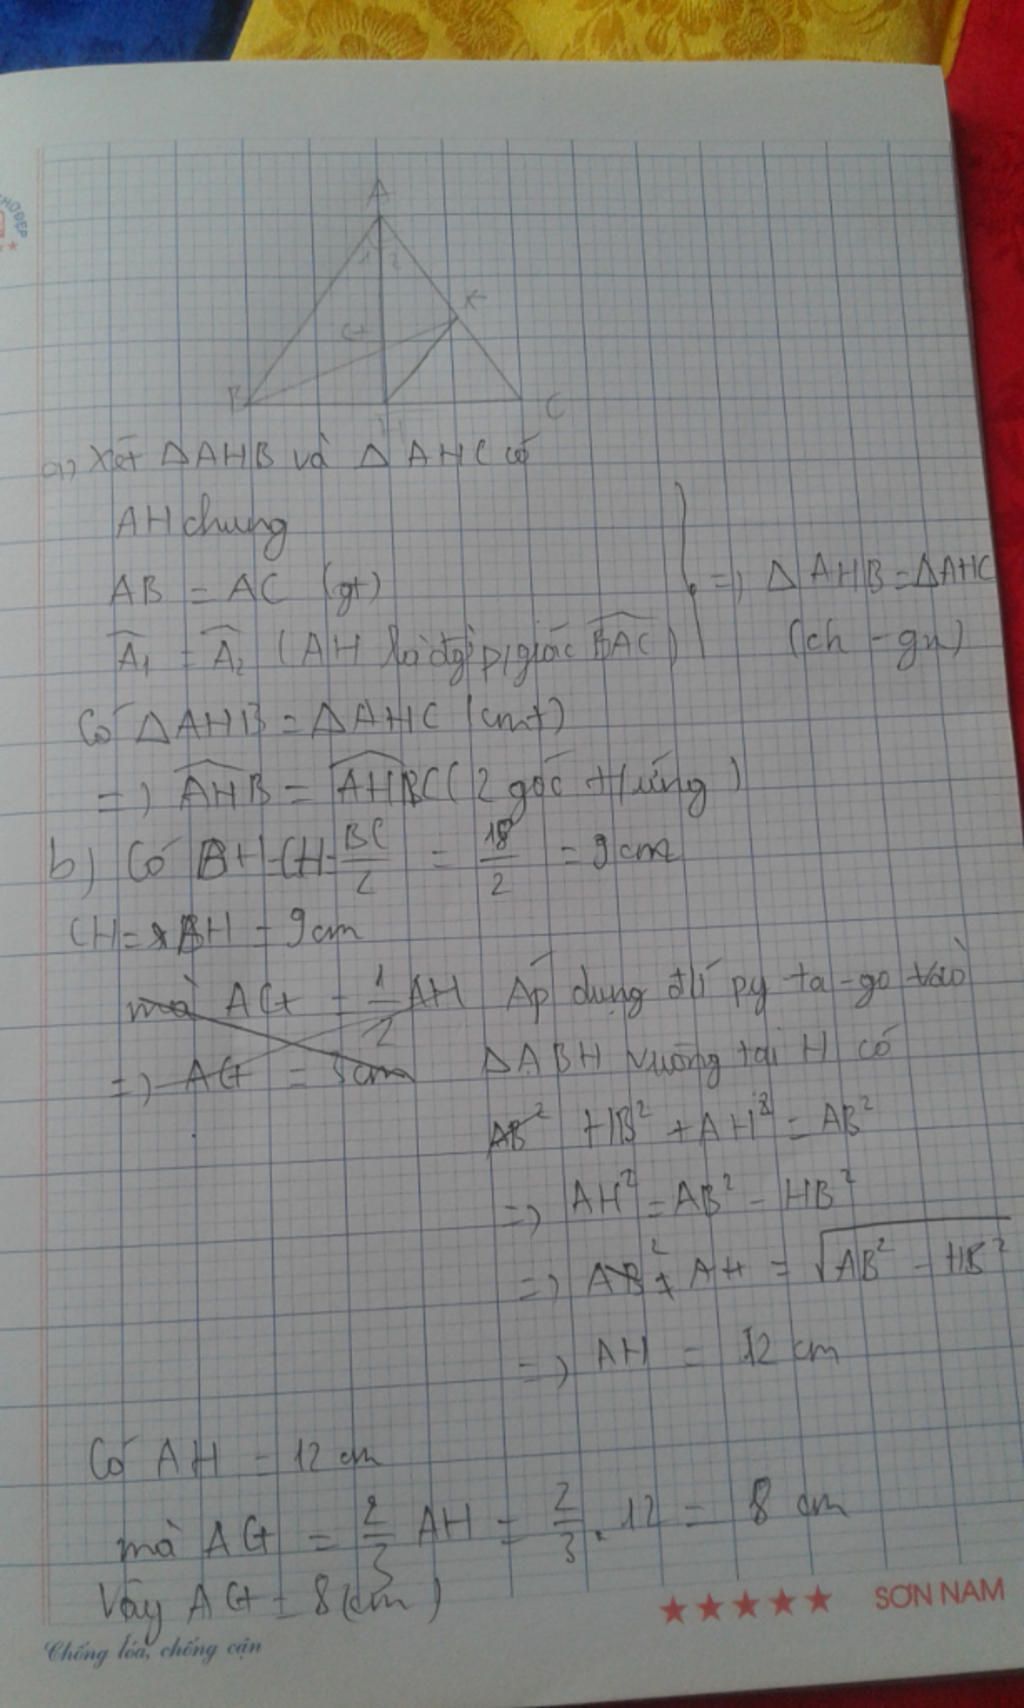 A
1 2
K
G
B
H
C
a, Xét ΔAHB và ΔAHC có
AH chung
AB = AC (gt)
=) ΔAHB = ΔAHC
Â1 = Â2 (AH là đg p/giác BAC)
(ch - gn)
Có ΔAHB = ΔAHC (cmt)
=) AHB = AHBC (2 góc tứng)
b) Có BH = CH = BC/2 = 18/2 = 9 cm
CH = BH = 9cm
mà AG = 1/2 AH
=) AG = cm
Áp dụng đlí py ta-go vào
ΔABH vuông tại H có
AB² HB² + AH² = AB²
=) AH² = AB² - HB²
=) AB² + AH = √AB² - HB²
=) AH = 12 cm
Có AH = 12 cm
mà AG = 2/3 AH = 2/3 . 12 = 8 cm
Vậy AG = 8 (cm)
★★★★★ SƠN NAM
Chống lóa, chống cận